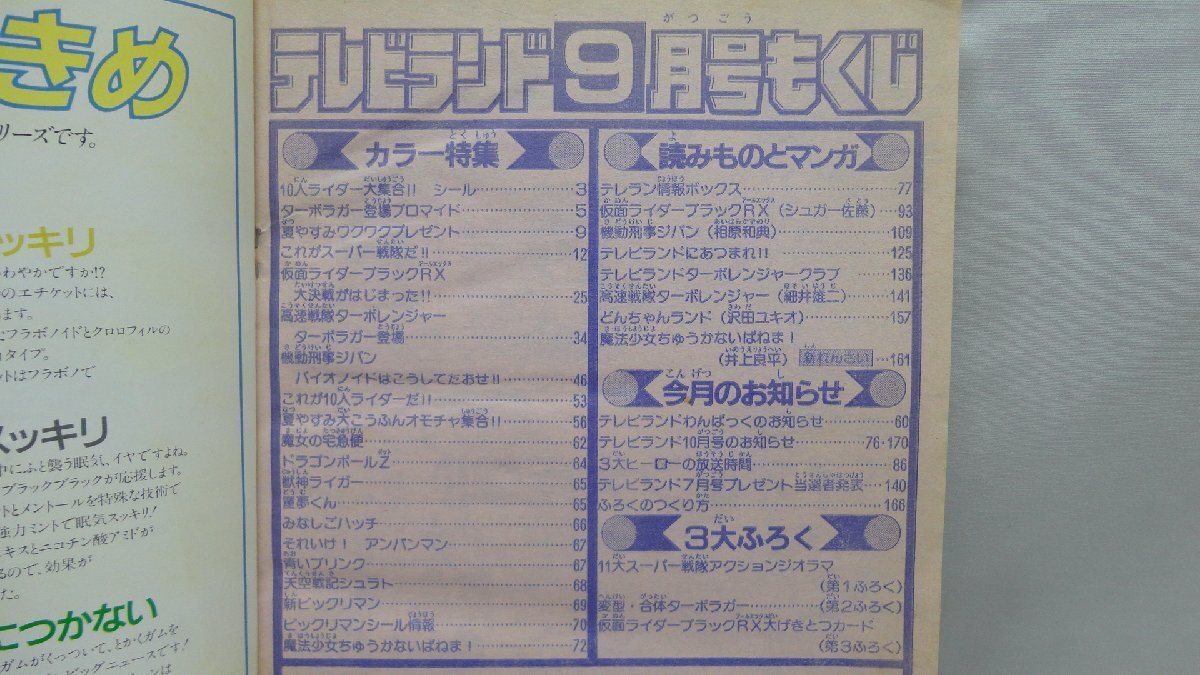 きめ
リーズです。
ッキリ
わやかですか!?
のエチケットには、
ます。
フラボノイドとクロロフィルの
タイプ。
ットはフラボノで
スッキリ
中にふと襲う眠気、イヤですよね。
ブラックブラックが応援します。
ントとメントールを特殊な技術で
強力ミントで眠気スッキリ!
キスとニコチン酸アミドが
るので、効果が
だ。
につかない
ガムがくっついて、とかくガムを
ビッグニュースです!
テレビランド9月号もくじ
カラー特集
10人ライダー大集合!! シール……3
ターボラガー登場ブロマイド……5
夏やすみワクワクプレゼント……9
これがスーパー戦隊だ!!……12
仮面ライダーブラックRX
大決戦がはじまった!!……25
高速戦隊ターボレンジャー
ターボラガー登場……34
機動刑事ジバン
バイオノイドはこうしてたおせ!!……46
これが10人ライダーだ!!……53
夏やすみ大こうふんオモチャ集合!!……56
魔女の宅急便……62
ドラゴンボールZ……64
獣神ライガー……65
童夢くん……65
みなしごハッチ……66
それいけ! アンパンマン……67
青いブリンク……67
天空戦記シュラト……68
新ビックリマン……69
ビックリマンシール情報……70
魔法少女ちゅうかないぱねま!……72
読みものとマンガ
テレラン情報ボックス……77
仮面ライダーブラックRX(シュガー佐藤)…93
機動刑事ジバン(相原和典)……109
テレビランドにあつまれ!!……125
テレビランドターボレンジャークラブ……136
高速戦隊ターボレンジャー(細井雄二)……141
どんちゃんランド(沢田ユキオ)……157
魔法少女ちゅうかないぱねま!
(井上良平)新れんさい…161
今月のお知らせ
テレビランドわんぱっくのお知らせ……60
テレビランド10月号のお知らせ……76・170
3大ヒーローの放送時間……86
テレビランド7月号プレゼント当選者発表…140
ふろくのつくり方……166
3大ふろく
11大スーパー戦隊アクションジオラマ
(第1ふろく)
変型・合体ターボラガー……(第2ふろく)
仮面ライダーブラックRX大げきとつカード
(第3ふろく)